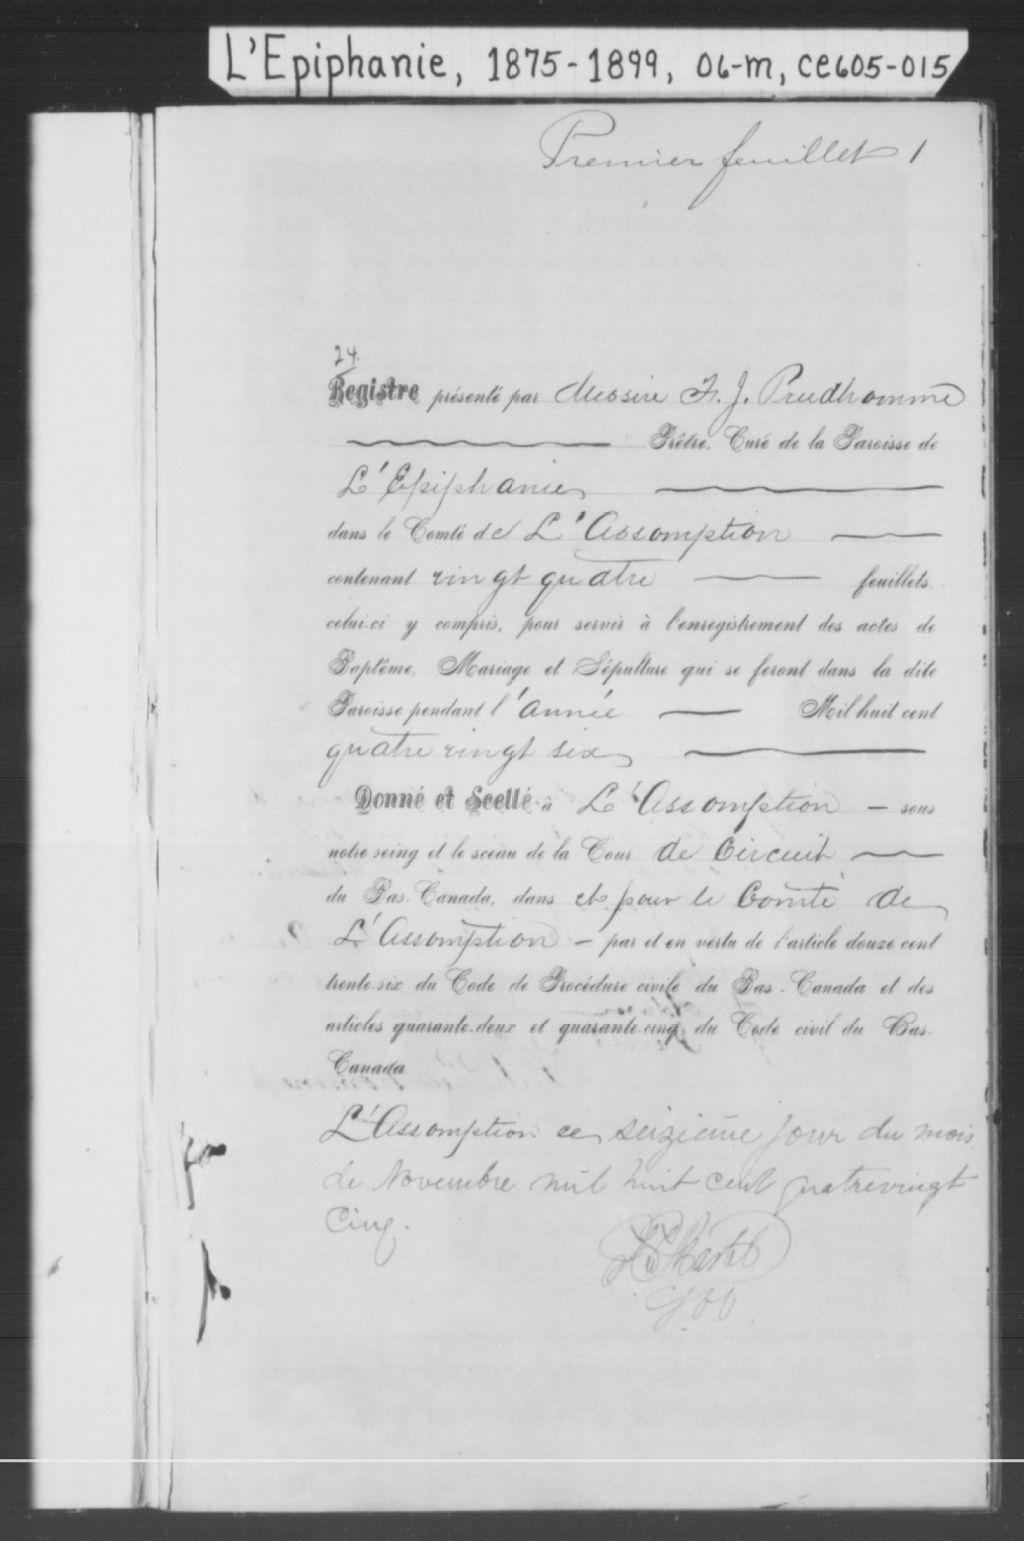 L'Epiphanie, 1875-1899, 06-m, ce605-015
Premier feuillet 1
24.
Registre présenté par Messire F. J. Prudhomme
Prêtre, Curé de la Paroisse de
L'Epiphanie
dans le Comté de L'Assomption
contenant vingt quatre feuillets,
celui-ci y compris, pour servir à l'enregistrement des actes de
Baptême, Mariage et Sépulture qui se feront dans la dite
Paroisse pendant l'année Mil huit cent
quatre vingt six
Donné et Scellé à L'Assomption – sous
notre seing et le sceau de la Cour de Circuit
du Bas-Canada, dans et pour le Comté de
L'Assomption – par et en vertu de l'article douze cent
trente-six du Code de Procédure civile du Bas-Canada et des
articles quarante-deux et quarante-cinq du Code civil du Bas-
Canada
L'Assomption ce seizième jour du mois
de Novembre mil huit cent quatrevingt
Cinq.